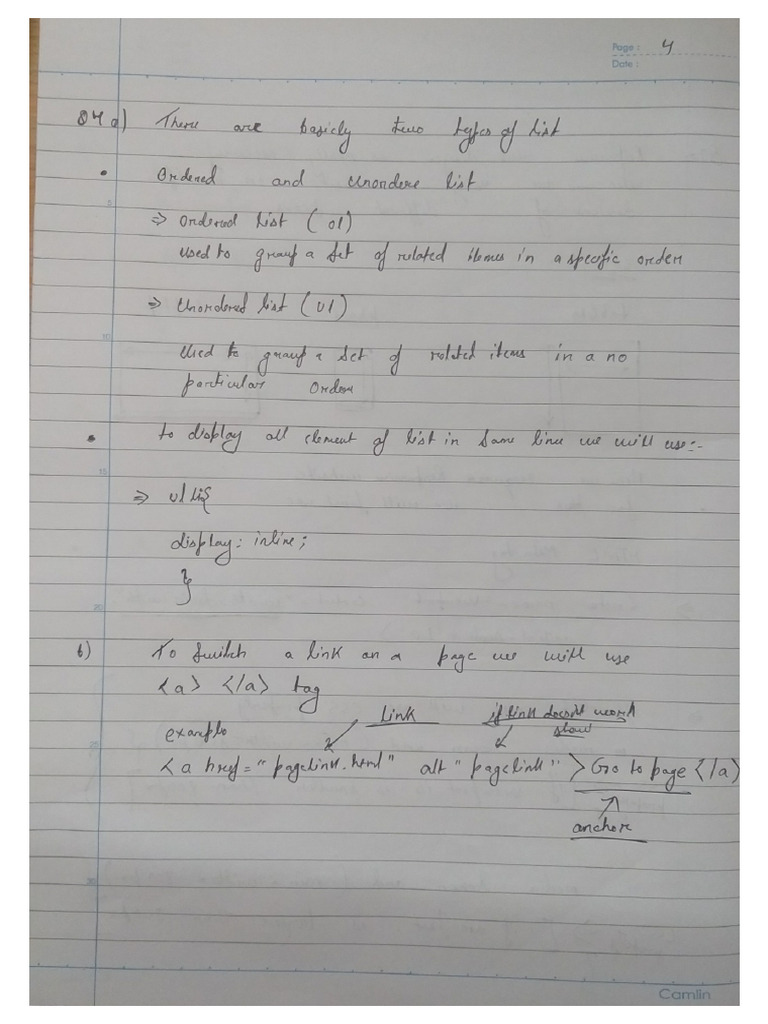 Page : 4
Date :
Q4 a) There are basicly two types of list
• Ordered and unordere list
⇒ Ordered List ( ol )
used to group a set of related items in a specific order
⇒ Unordered list ( ul )
Used to group a set of related items in a no
particular order
• to display all element of list in same line we will use:-
⇒ ul li{
display: inline;
}
b) To switch a link on a page we will use
<a> </a> tag
link if link doesn't work
example show
<a href="pagelink.html" alt "pagelink" > Go to page </a>
anchor
Camlin